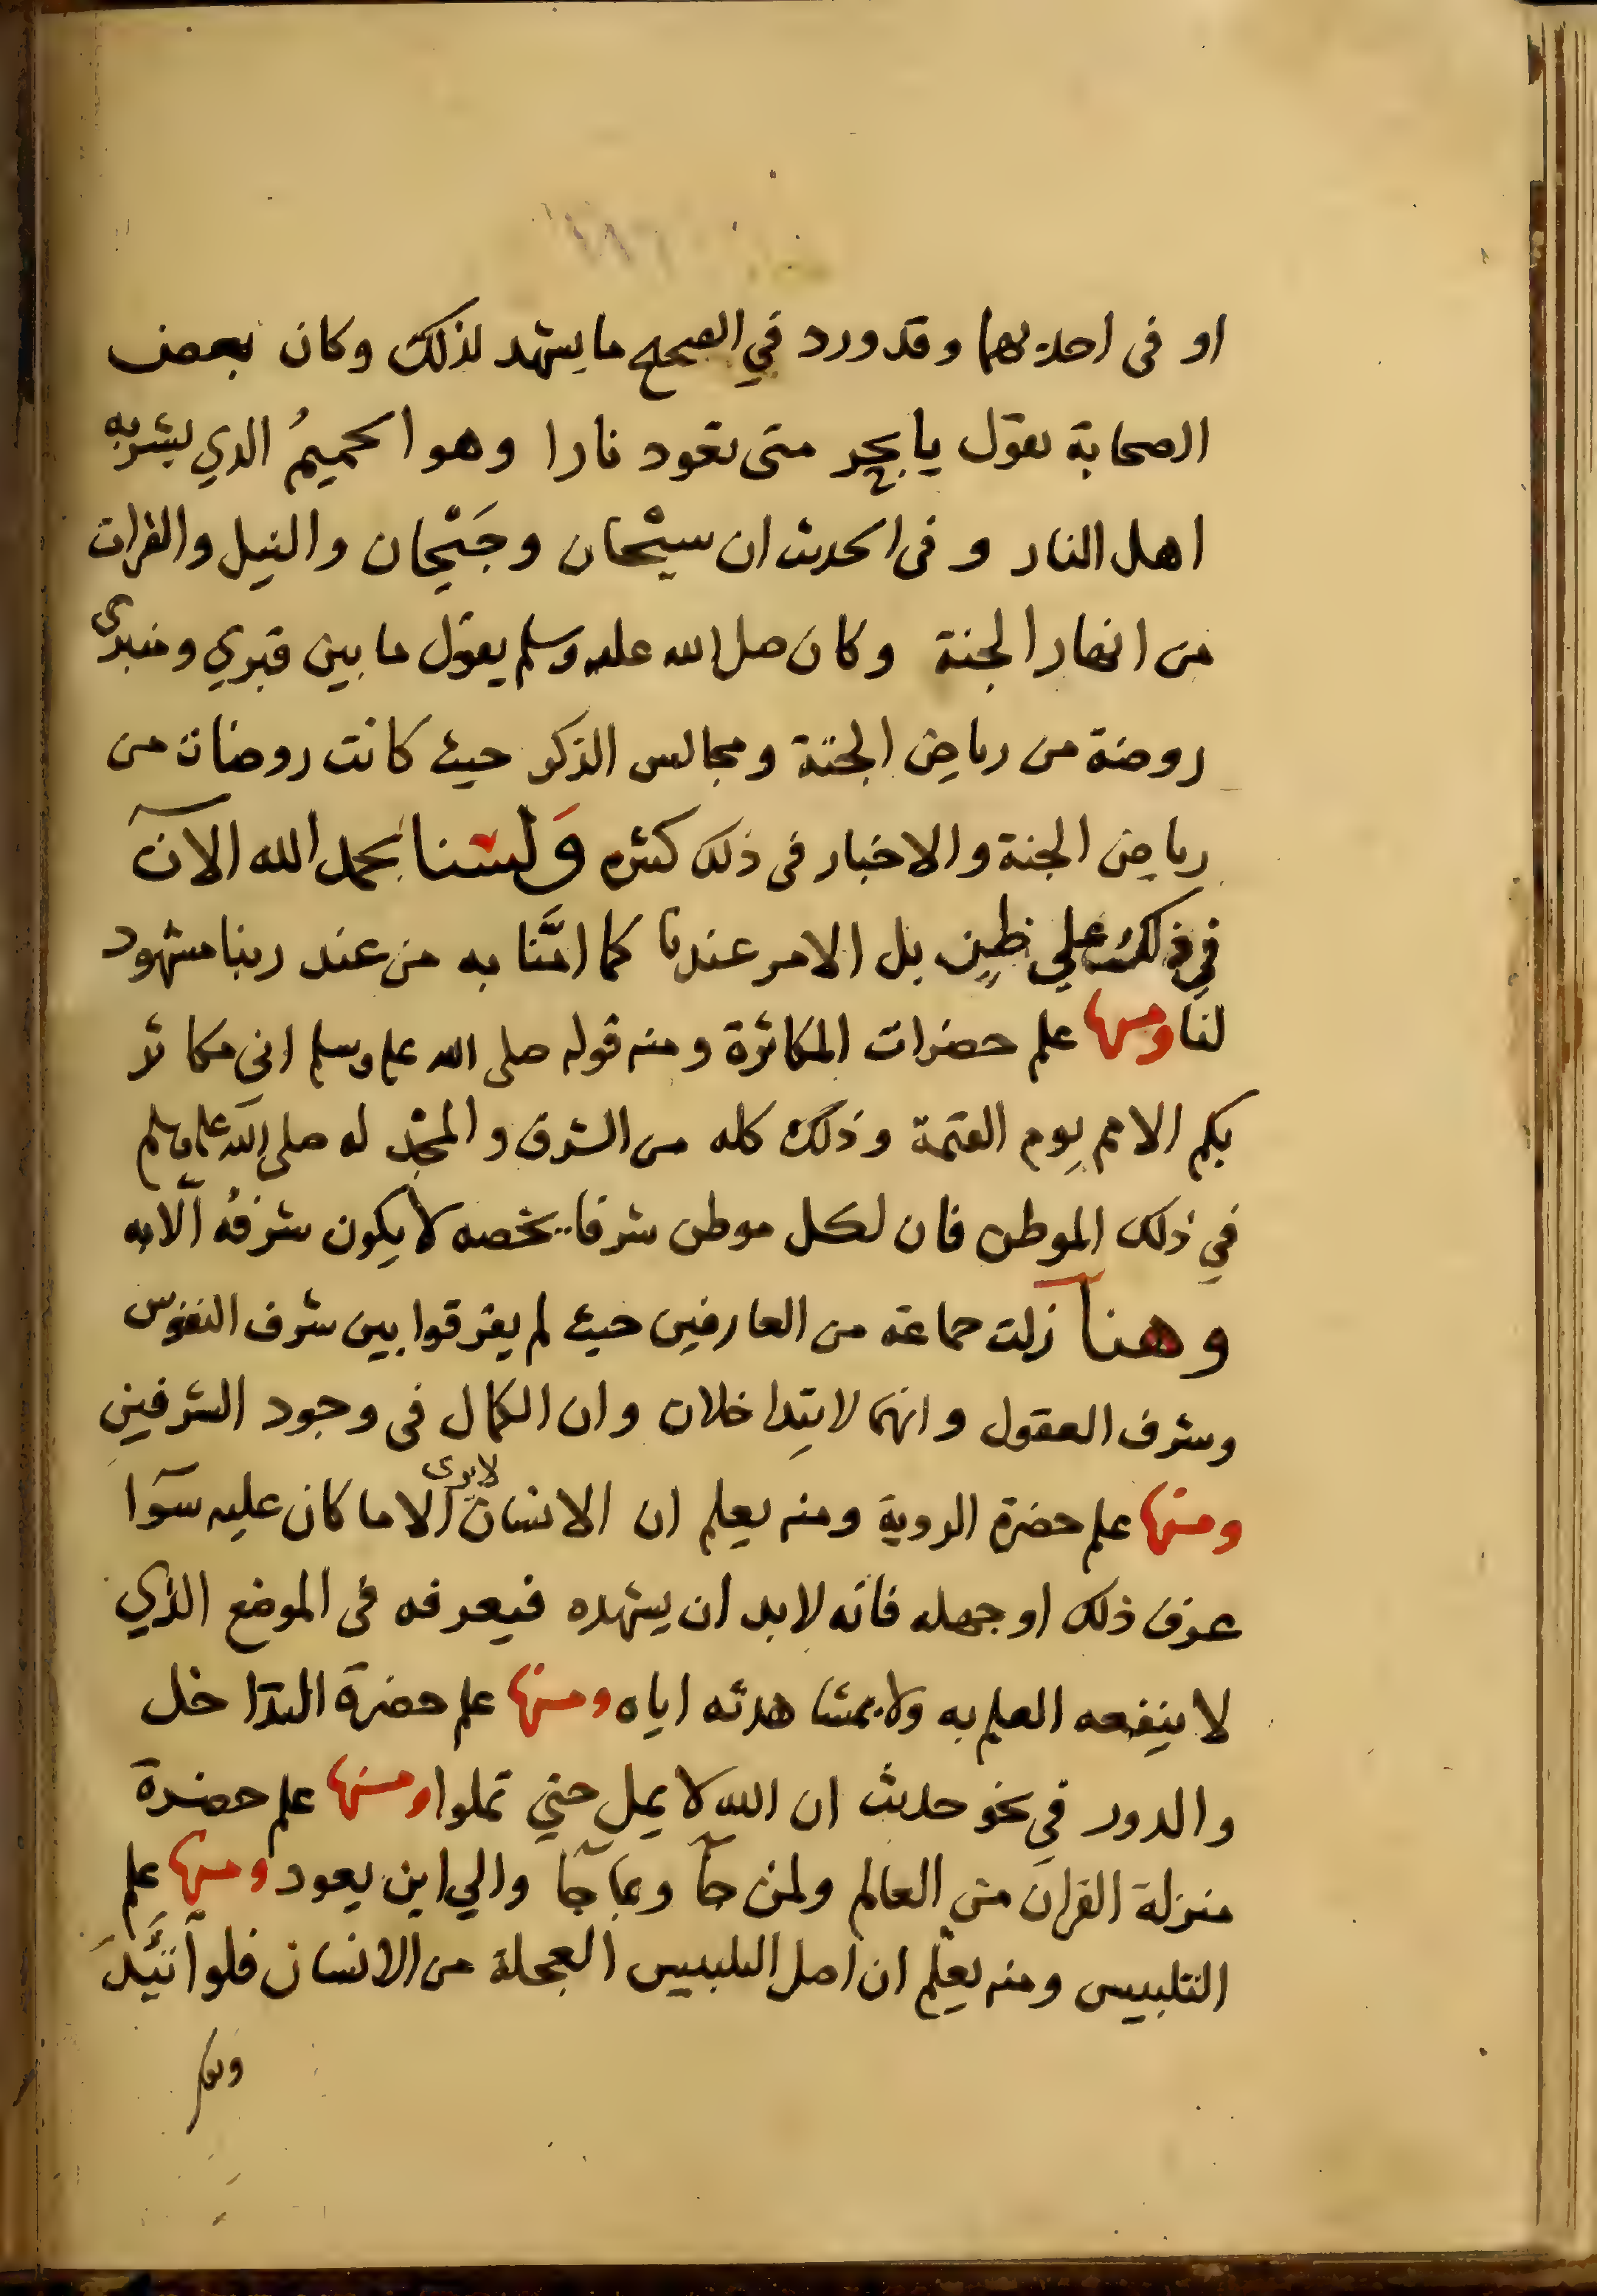 او فى احديهما وقد ورد في الصحيح ما يشهد لذلك وكان بعض
الصحابة يقول يا بحر متى تعود نارا وهو الحميمُ الدي يشربه
اهل النار و فى الحديث ان سيْحان وجَيْحان والنيل والفرات
من انهار الجنة وكان صلى الله عليه وسلم يقول ما بين قبري ومنبري
روضة من رياض الجنة ومجالس الذكر حيث كانت روضات من
رياض الجنة والاخبار فى ذلك كثيره وَلسنا بحمد الله الآن
في ذلك علي ظن بل الامر عندنا كما امَنَّا به من عند ربنا مشهود
لنا ومنها علم حضرات المكاثرة ومنه قوله صلى الله عليه وسلم اني مكاثر
بكم الامم يوم القيمة وذلك كله من الشرف والمجد له صلى الله عليه وسلم
في ذلك الموطن فان لكل موطن شرفا يخصه لا يكون شرفُه الّا به
وهنا زلت جماعة من العارفين حيث لم يفرقوا بين شرف النفوس
وشرف العقول وانهما لا يتداخلان وان الكمال فى وجود الشرفين
ومنها علم حضرة الروية ومنه يعلم ان الانسان لا يرى الا ما كان عليه سوآ
عرف ذلك او جهله فانه لابد ان يشهده فيعرفه فى الموضع الذي
لا ينفعه العلم به ولا بمشاهدته اياه ومنها علم حضرة التداخل
والدور في نحو حديث ان الله لا يمل حتي تملوا ومنها علم حضرة
منزلة القران من العالم ولمن جآ وبما جآ والي اين يعود ومنها علم
التلبيس ومنه يعلم ان اصل التلبيس العجلة من الانسان فلو اتَّئَدَ
وتفكر